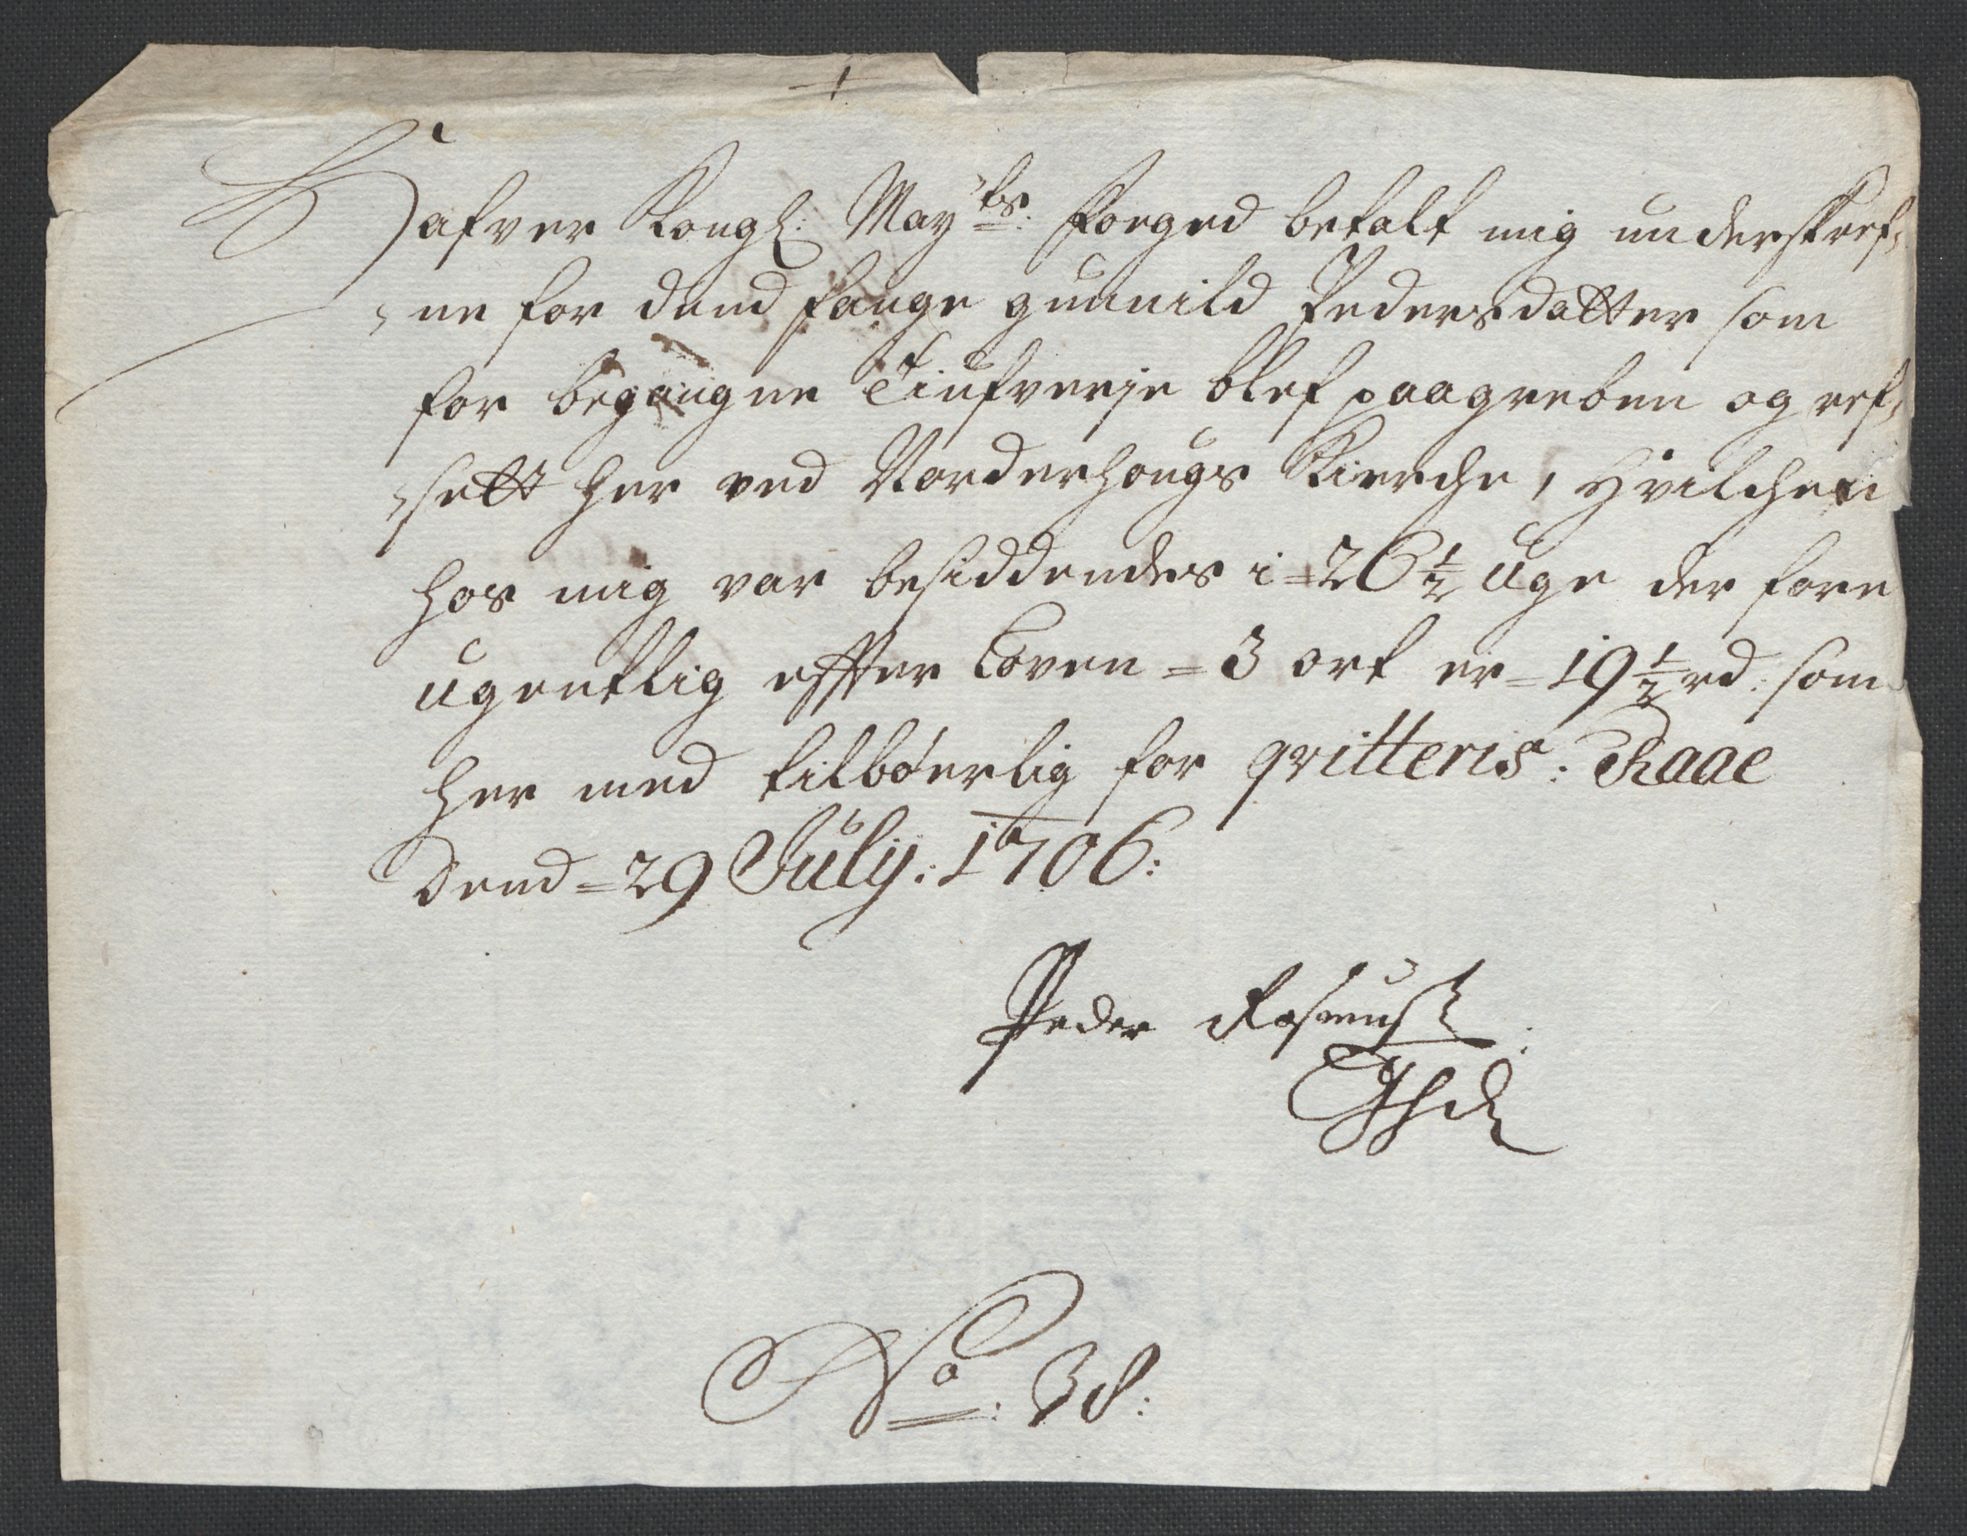 Hafver Kongl: May:ts Foged betalt mig underskref-
ne for dend fange gunnild Pedersdatter som
for begangne Tiufverje blef paagreben og ref-
sett her ved Norderhougs Kierche, Hvilchen
hos mig var besiddendes i = 26 1/2 Uge der fore
ugentlig effter Loven = 3 ort er = 19 1/2 rd: som
her med tilbørlig for qvitteris: Raae
Dend = 29 July: 1706:
Peder Rasmuss
No: 38: